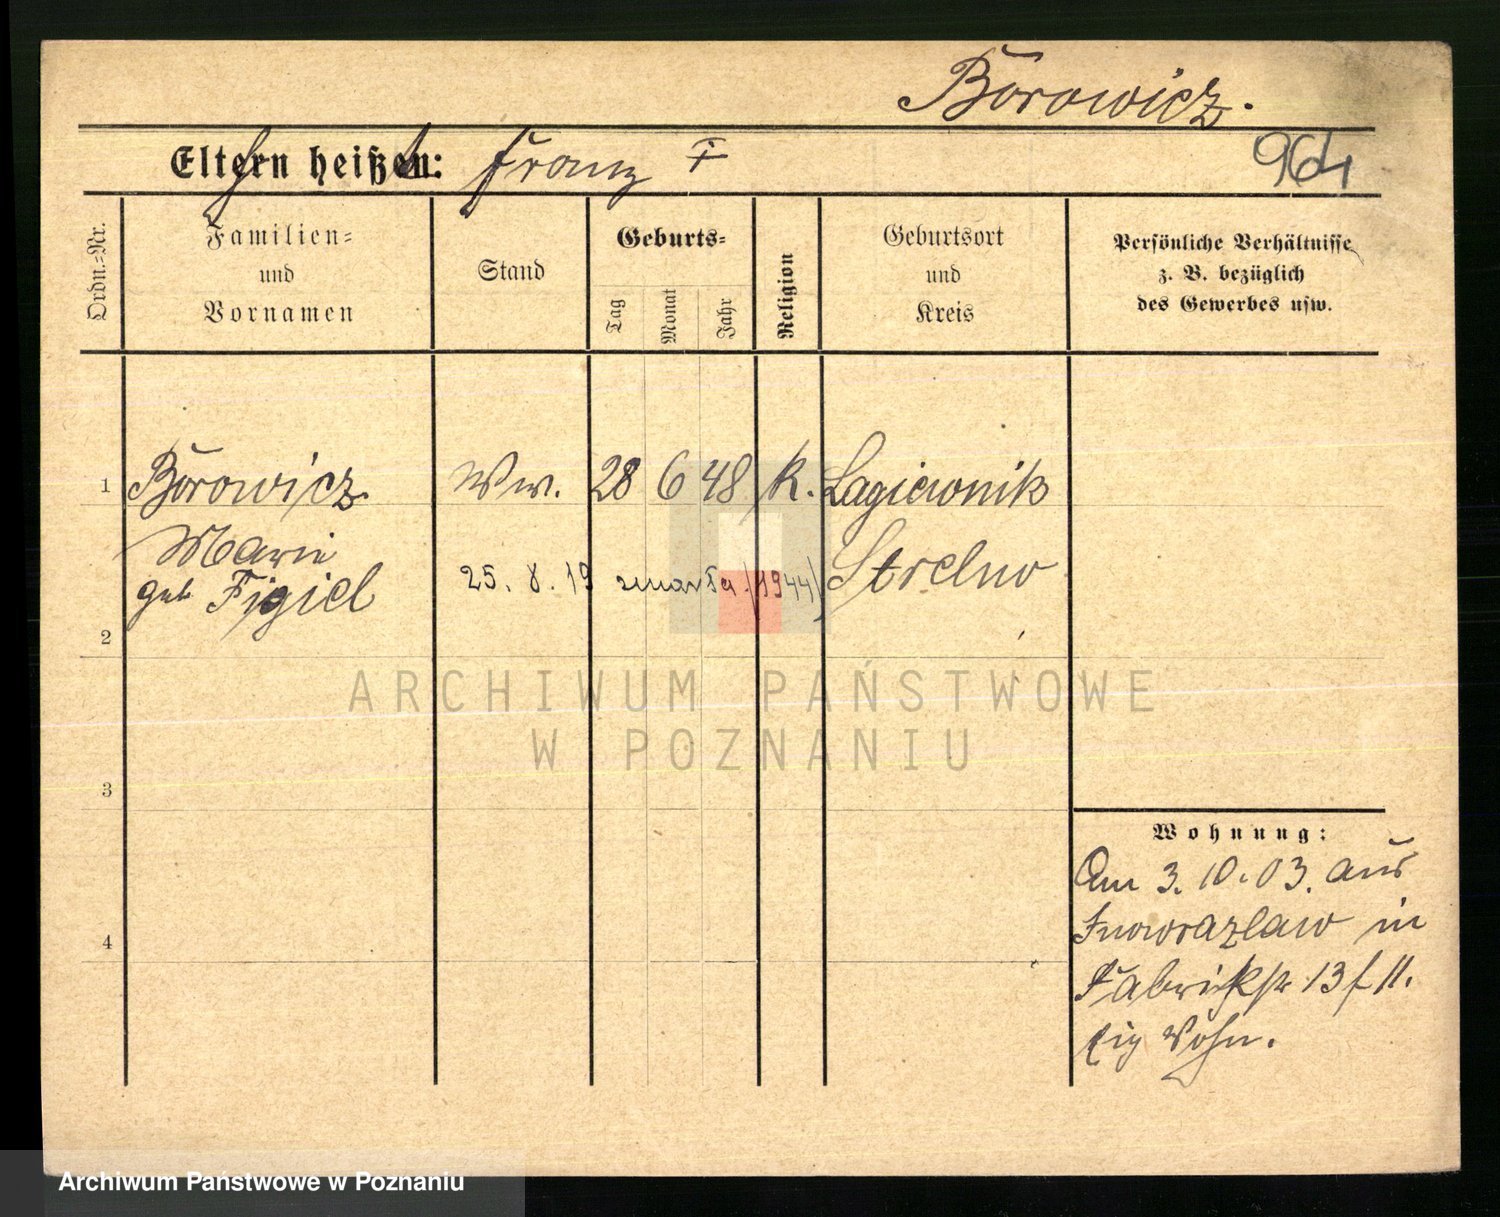 Borowicz.
Eltern heißen: Franz †
964
Ordn.-Nr.
Familien- und Vornamen
Stand
Geburts-
Tag
Monat
Jahr
Religion
Geburtsort und Kreis
Persönliche Verhältnisse z. B. bezüglich des Gewerbes usw.
1
Borowicz
Ww.
28 6 48
K.
Lagiewnik
Marie
Strelno
geb Figiel
25. 8. 19 zmarła (1944)
2
3
4
Wohnung:
Am 3. 10. 03. aus
Inowrazlaw in
Fabrikstr 13 f II.
eig Wohn.
ARCHIWUM PAŃSTWOWE
W POZNANIU
Archiwum Państwowe w Poznaniu